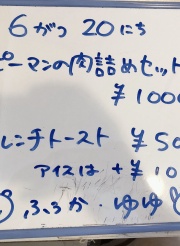 6がつ 20にち
ピーマンの肉詰めセット
¥1000
レンチトースト ¥50
アイスは +¥10
ふうか・ゆゆ